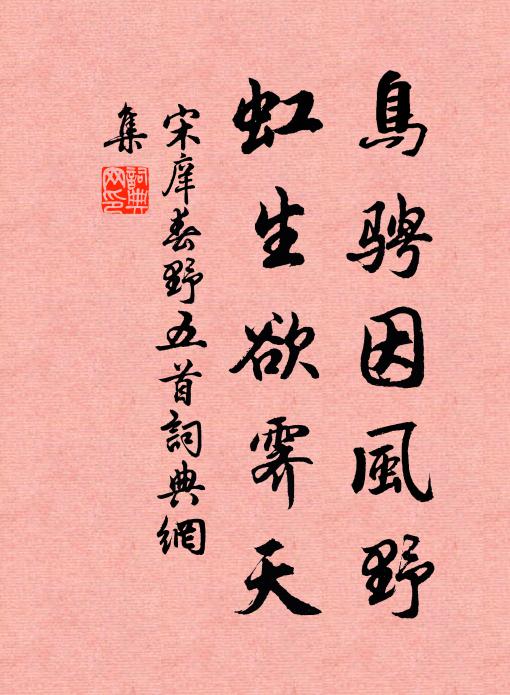 鳥騁因風野
虹生欲霽天
宋庠春野五首詞典網
集
詞典
网印